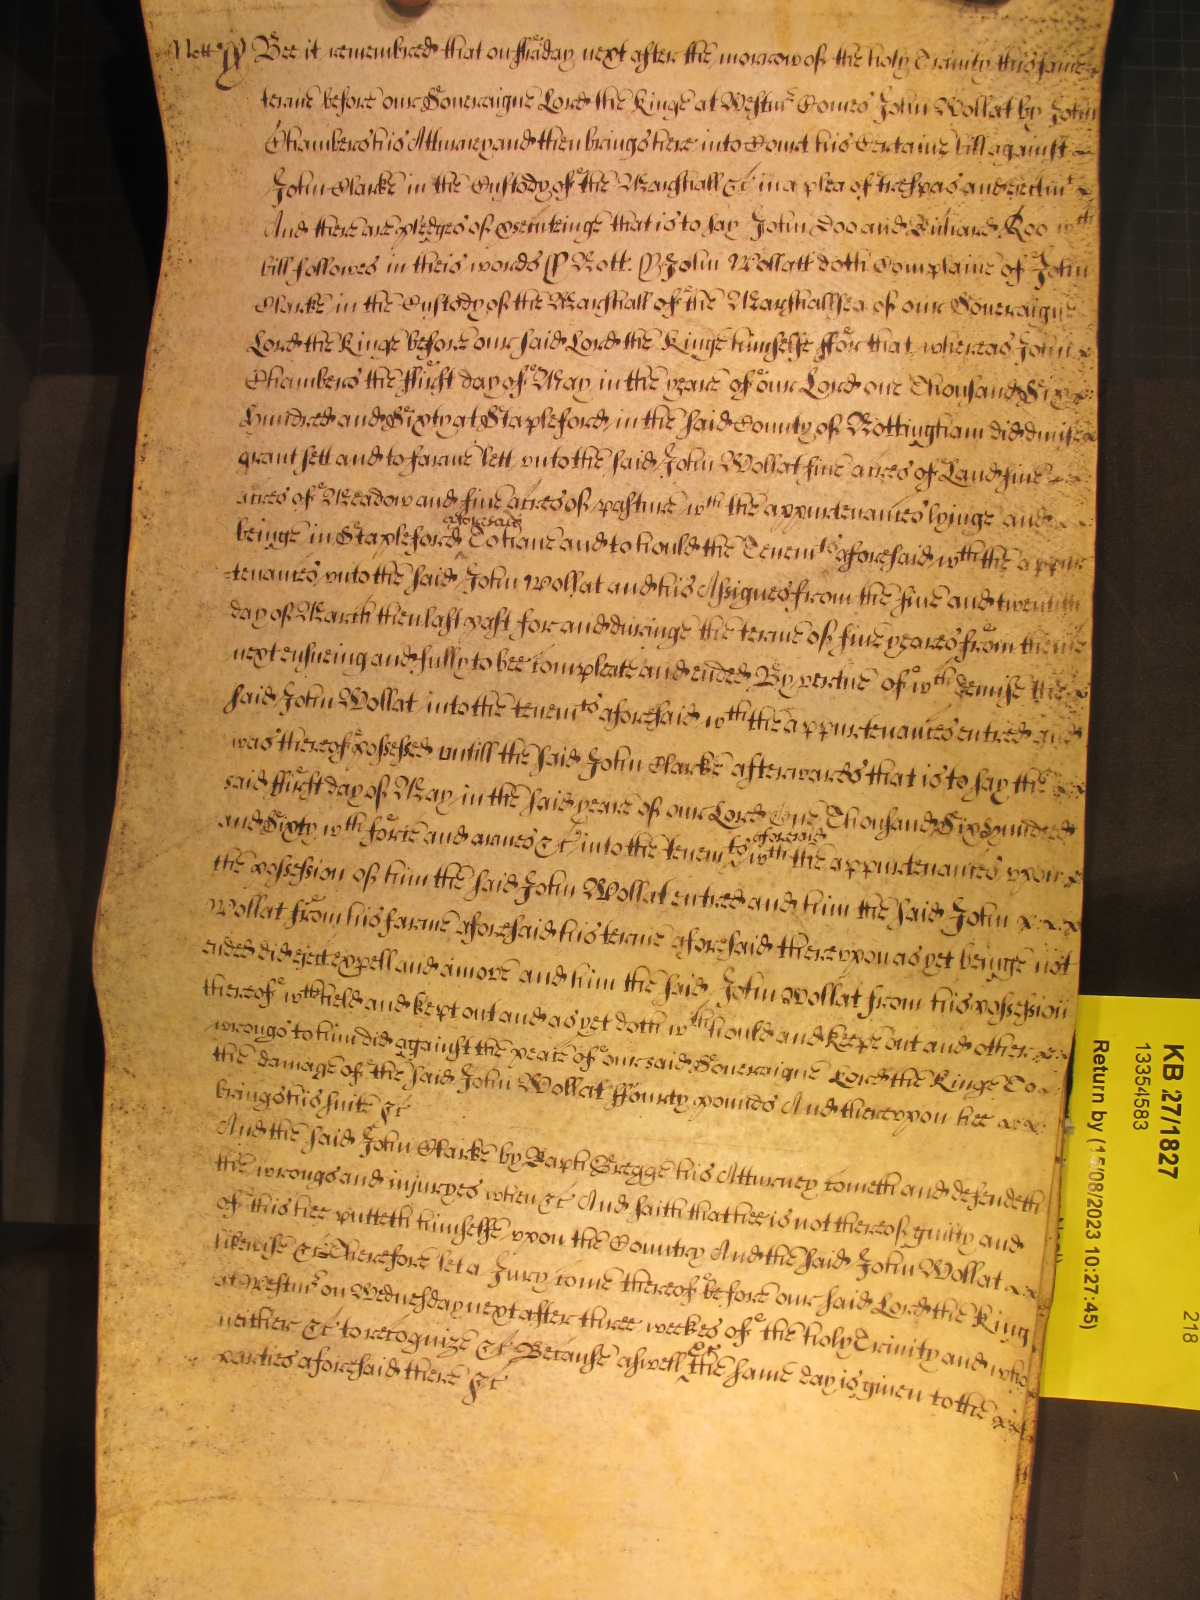 Nott ss Bee it remembred that on ffriday next after the morrow of the holy Trinity this same
terme before our Soveraigne Lord the Kinge at Westmr Comes John Wollat by John
Chambers his Atturney and then brings here into Court his Certaine bill against
John Clarke in the Custody of the Marshall &c in a plea of trespas and ejectmt
And there are pledges of prosecuteinge that is to say John Doo and Richard Roo wch
bill followes in theis words ss Nott: ss John Wollatt doth Complaine of John
Clarke in the Custody of the Marshall of the Marshallsea of our Soveraigne
Lord the Kinge before our said Lord the Kinge himselfe ffor that whereas John
Chambers the ffirst day of May in the yeare of our Lord one Thousand Six
hundred and Sixty at Stapleford in the said County of Nottingham did dimise
grant sett and to farme lett unto the said John Wollat five acres of Land five
acres of Meadow and five acres of pasture wth the appurtenances lyinge and
beinge in Stapleford aforesaid To have and to hould the Tenemts aforesaid wth the appur
-tenances unto the said John Wollat and his Assignes from the five and twentith
day of March then last past for and duringe the terme of five yeares from thence
next ensueing and fully to bee compleate and ended By vertue of wch demise the
said John Wollat into the tenemts aforesaid wth the appurtenances entred and
was thereof possessed untill the said John Clarke afterwards that is to say the
said ffirst day of May in the said yeare of our Lord One Thousand Six hundred
and Sixty wth force and armes &c into the tenemts aforesaid wth the appurtenances upon
the possession of him the said John Wollat entred and him the said John
Wollat from his farme aforesaid his terme aforesaid thereupon as yet beinge not
ended did eject expell and amove and him the said John Wollat from his possession
thereof wthheld and kept out and as yet doth wthhould and keepe out and other
wrongs to him did against the peace of our said Soveraigne Lord the Kinge To
the damage of the said John Wollat ffourty pounds And thereupon hee
brings his suite &c
And the said John Clarke by Bapt Gregge his Atturney cometh and defendeth
the wrongs and injuryes when &c And saith that hee is not thereof guilty and
of this hee putteth himselfe upon the Country And the said John Wollat
likewise &c Therefore let a Jury come thereof before our said Lord the King
at Westmr on Wednesday next after three weekes of the holy Trinity and who
neither &c to recognize &c Because aswell &c the same day is given to the
parties aforesaid there &c
KB 27/1827
13354583
Return by (15/08/2023 10:27:45)
218